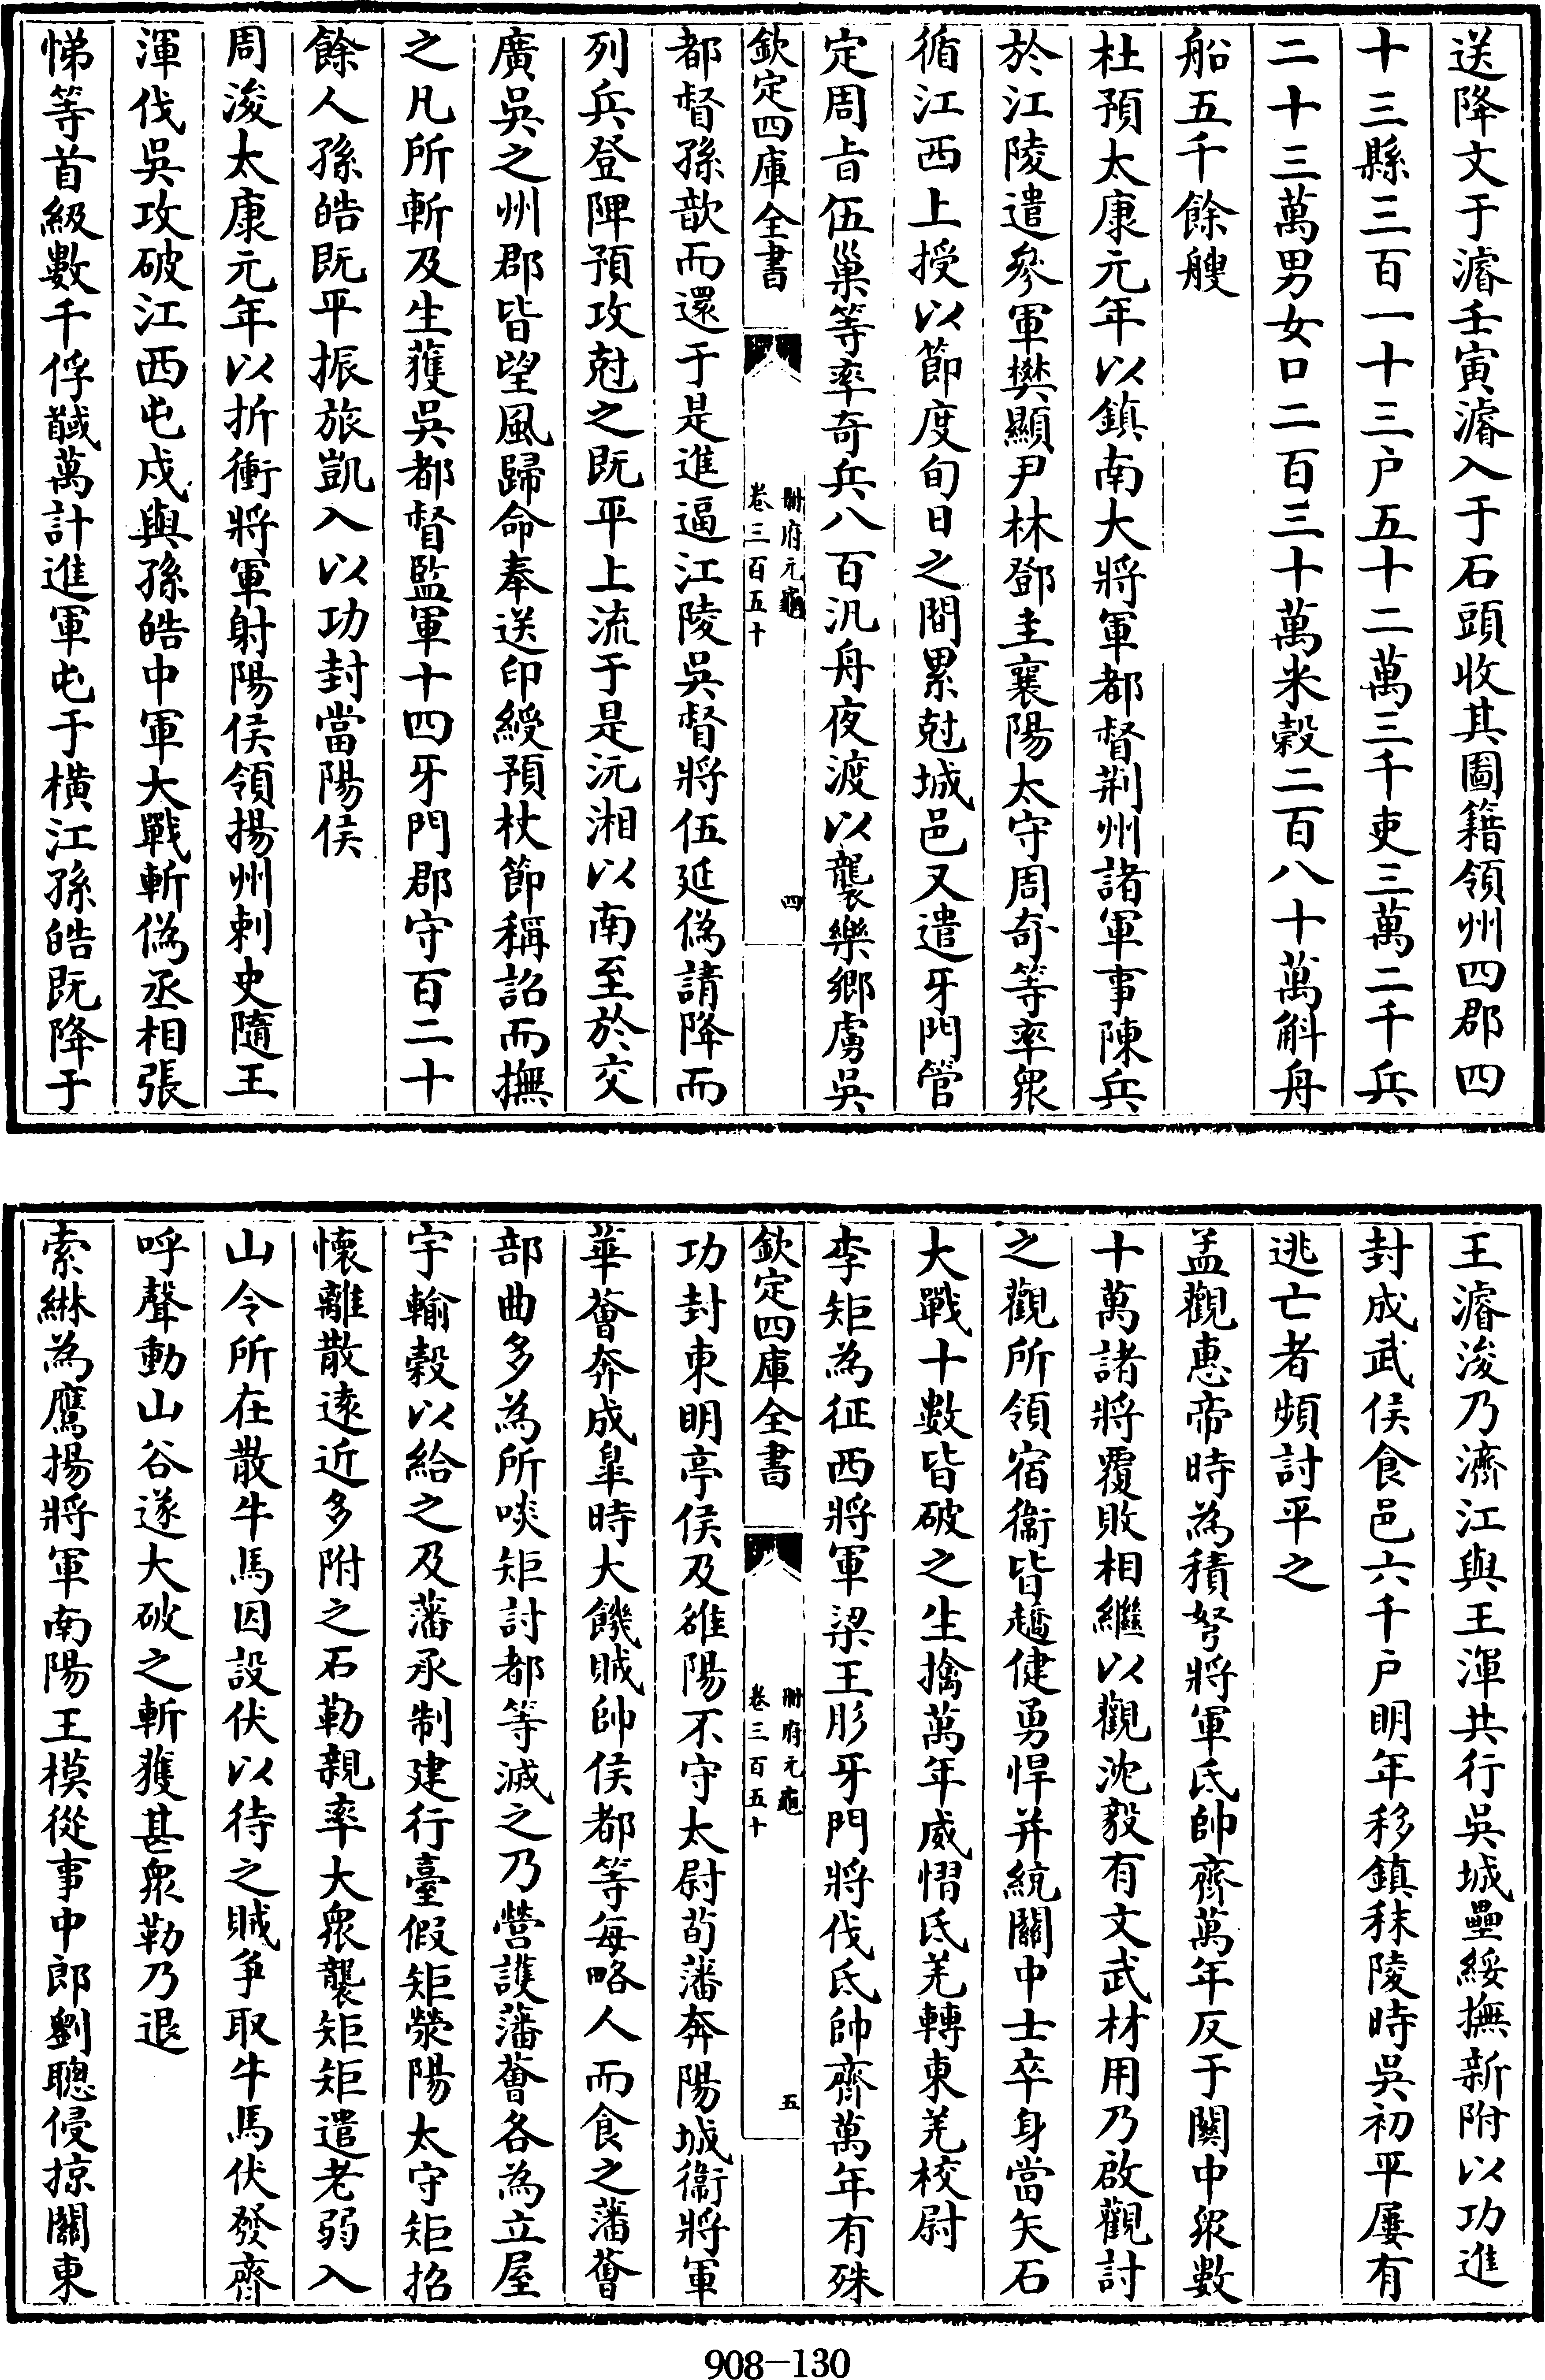 送降文于濬壬寅濬入于石頭收其圖籍領州四郡四
十三縣三百一十三户五十二萬三千吏三萬二千兵
二十三萬男女口二百三十萬米穀二百八十萬斛舟
船五千餘艘
杜預太康元年以鎮南大將軍都督荆州諸軍事陳兵
於江陵遣參軍樊顯尹林鄧圭襄陽太守周奇等率衆
循江西上授以節度旬日之間累尅城邑又遣牙門管
定周旨伍巢等率奇兵八百汎舟夜渡以襲樂鄉虜吳
欽定四庫全書
冊府元龜
卷三百五十
四
都督孫歆而還于是進逼江陵吳督將伍延偽請降而
列兵登陴預攻尅之既平上流于是沅湘以南至於交
廣吳之州郡皆望風歸命奉送印綬預杖節稱詔而撫
之凡所斬及生獲吳都督監軍十四牙門郡守百二十
餘人孫皓既平振旅凱入以功封當陽侯
周浚太康元年以折衝將軍射陽侯領揚州刺史隨王
渾伐吳攻破江西屯戍與孫皓中軍大戰斬偽丞相張
悌等首級數千俘馘萬計進軍屯于橫江孫皓既降于
王濬浚乃濟江與王渾共行吳城壘綏撫新附以功進
封成武侯食邑六千户明年移鎮秣陵時吳初平屢有
逃亡者頻討平之
孟觀惠帝時為積弩將軍氐帥齊萬年反于關中衆數
十萬諸將覆敗相繼以觀沈毅有文武材用乃啟觀討
之觀所領宿衞皆趫健勇悍并統關中士卒身當矢石
大戰十數皆破之生擒萬年威慴氐羌轉東羌校尉
李矩為征西將軍梁王肜牙門將伐氐帥齊萬年有殊
欽定四庫全書
冊府元龜
卷三百五十
五
功封東明亭侯及雒陽不守太尉荀藩奔陽城衞將軍
華薈奔成臯時大饑賊帥侯都等每略人而食之藩薈
部曲多為所啖矩討都等滅之乃營護藩薈各為立屋
宇輸穀以給之及藩承制建行臺假矩滎陽太守矩招
懷離散遠近多附之石勒親率大衆襲矩矩遣老弱入
山令所在散牛馬因設伏以待之賊爭取牛馬伏發齊
呼聲動山谷遂大破之斬獲甚衆勒乃退
索綝為鷹揚將軍南陽王模從事中郎劉聰侵掠關東
908-130